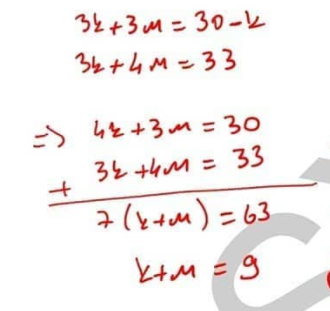 3k+3m = 30-k
3k+4m = 33
=> 4k+3m = 30
+ 3k+4m = 33
7(k+m) = 63
k+m = 9